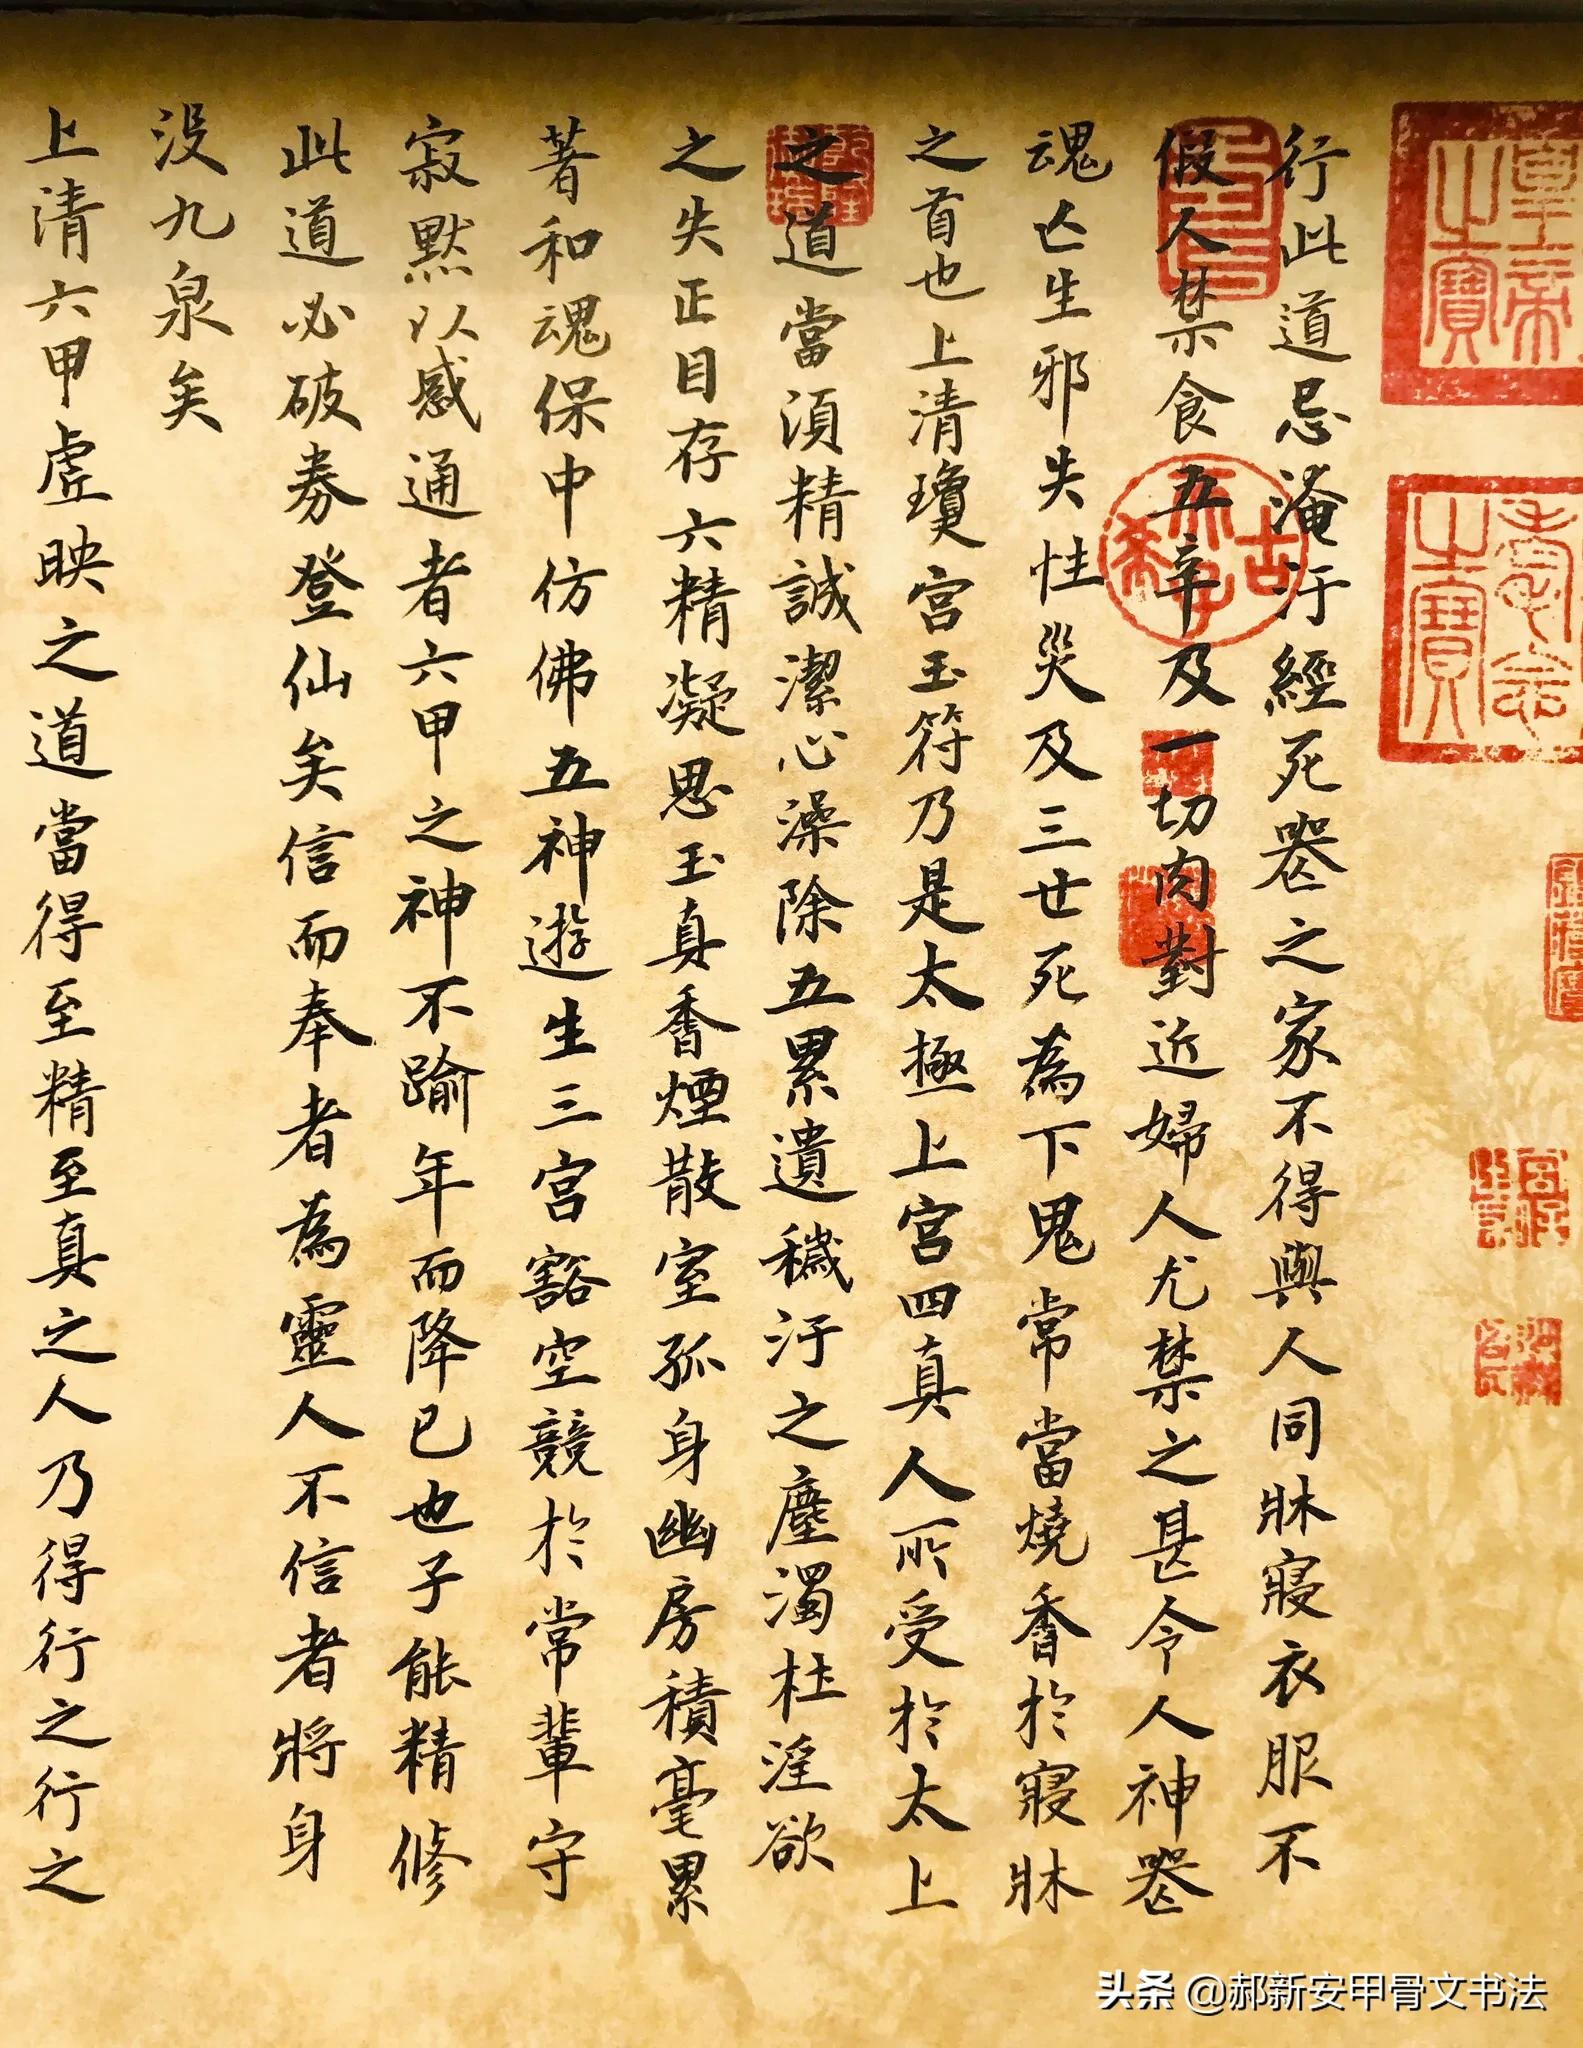 行此道忌淹汙經死䘮之家不得與人同牀寢衣服不
假人禁食五辛及一切肉對近婦人尤禁之甚令人神䘮
魂亡生邪失性災及三世死為下鬼常當燒香於寢牀
之首也上清瓊宮玉符乃是太極上宮四真人所受於太上
之道當須精誠潔心澡除五累遺穢汙之塵濁杜淫欲
之失正目存六精凝思玉真香煙散室孤身幽房積毫累
著和魂保中仿佛五神遊生三宮豁空競於常輩守
寂默以感通者六甲之神不踰年而降已也子能精修
此道必破券登仙矣信而奉者為靈人不信者將身
没九泉矣
上清六甲虛映之道當得至精至真之人乃得行之行之
皇帝之寶
之寶
古希天子
头条 @郝新安甲骨文书法